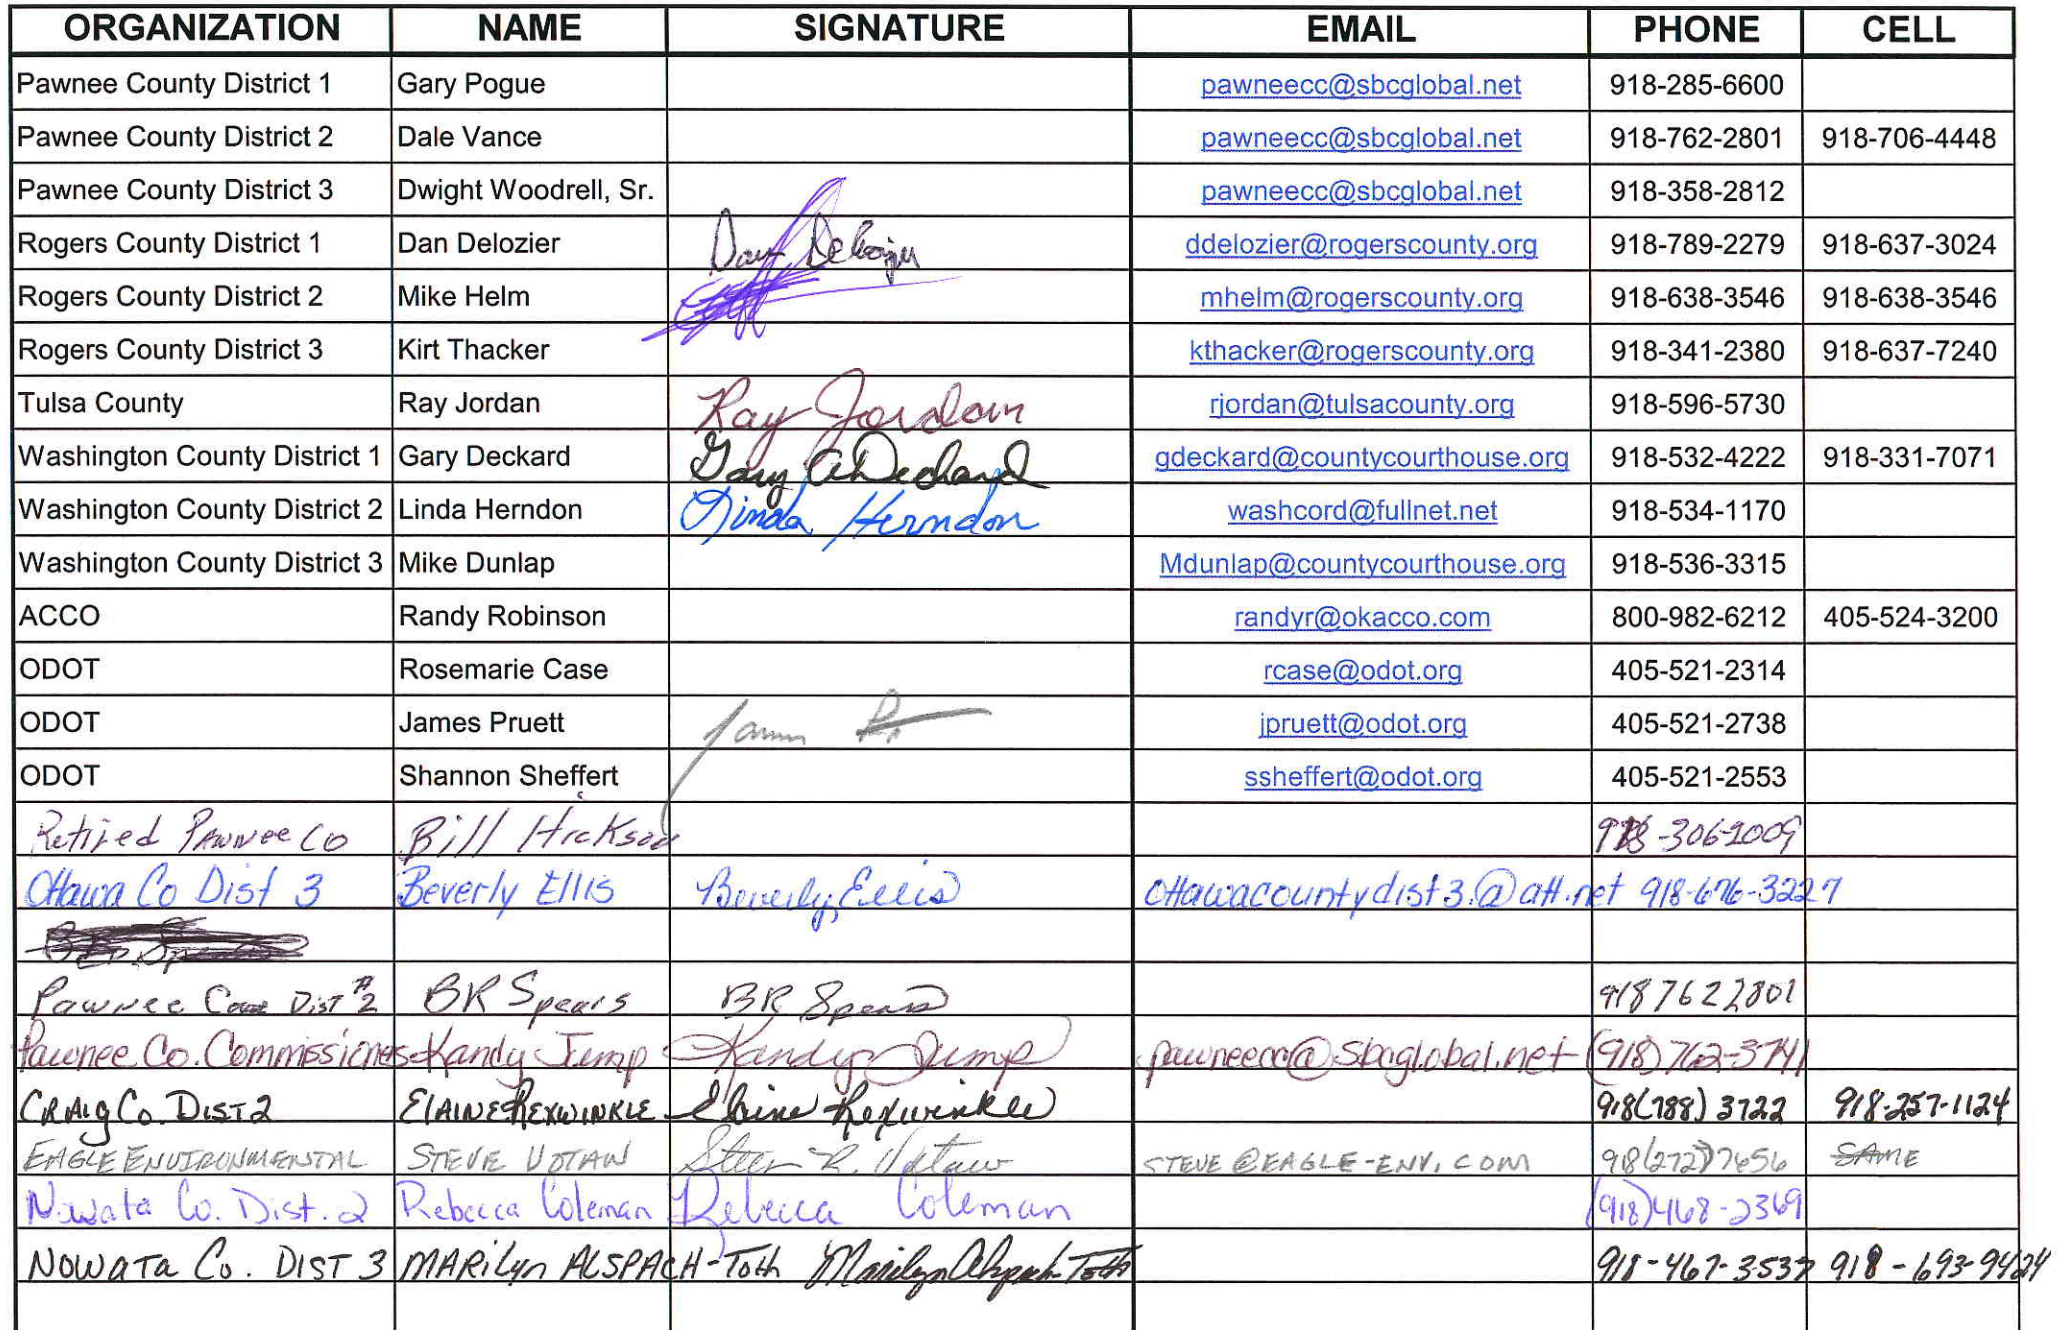 ORGANIZATION NAME SIGNATURE EMAIL PHONE CELL
Pawnee County District 1 Gary Pogue pawneecc@sbcglobal.net 918-285-6600
Pawnee County District 2 Dale Vance pawneecc@sbcglobal.net 918-762-2801 918-706-4448
Pawnee County District 3 Dwight Woodrell, Sr. pawneecc@sbcglobal.net 918-358-2812
Rogers County District 1 Dan Delozier Dan Delozier ddelozier@rogerscounty.org 918-789-2279 918-637-3024
Rogers County District 2 Mike Helm mhelm@rogerscounty.org 918-638-3546 918-638-3546
Rogers County District 3 Kirt Thacker kthacker@rogerscounty.org 918-341-2380 918-637-7240
Tulsa County Ray Jordan Ray Jordan rjordan@tulsacounty.org 918-596-5730
Washington County District 1 Gary Deckard Gary A Deckard gdeckard@countycourthouse.org 918-532-4222 918-331-7071
Washington County District 2 Linda Herndon Linda Herndon washcord@fullnet.net 918-534-1170
Washington County District 3 Mike Dunlap Mdunlap@countycourthouse.org 918-536-3315
ACCO Randy Robinson randyr@okacco.com 800-982-6212 405-524-3200
ODOT Rosemarie Case rcase@odot.org 405-521-2314
ODOT James Pruett James jpruett@odot.org 405-521-2738
ODOT Shannon Sheffert ssheffert@odot.org 405-521-2553
Retired Pawnee Co Bill Hickson
Ottawa Co Dist 3 Beverly Ellis Beverly Ellis ottawacountydist3.@att.net 918-676-3227
Pawnee Dist #2 BR Spears BR Spears 918 762 2801
Pawnee Co. Commissioners Kandy Jump Kandy Jump pawneecc@sbcglobal.net (918) 762-3741
CRAIG Co. DIST 2 ELAINE REXWINKLE Elaine Rexwinkle 918(788) 3722 918-257-1124
EAGLE ENVIRONMENTAL STEVE VOTAW Steve R. Votaw STEVE@EAGLE-ENV.COM 918(272)7656 SAME
Nowata Co. Dist. 2 Rebecca Coleman Rebecca Coleman (918)468-2369
NOWATA Co. DIST 3 MARILYN ALSPACH-Toth Marilyn Alspach-Toth 918-467-3537 918-693-9424